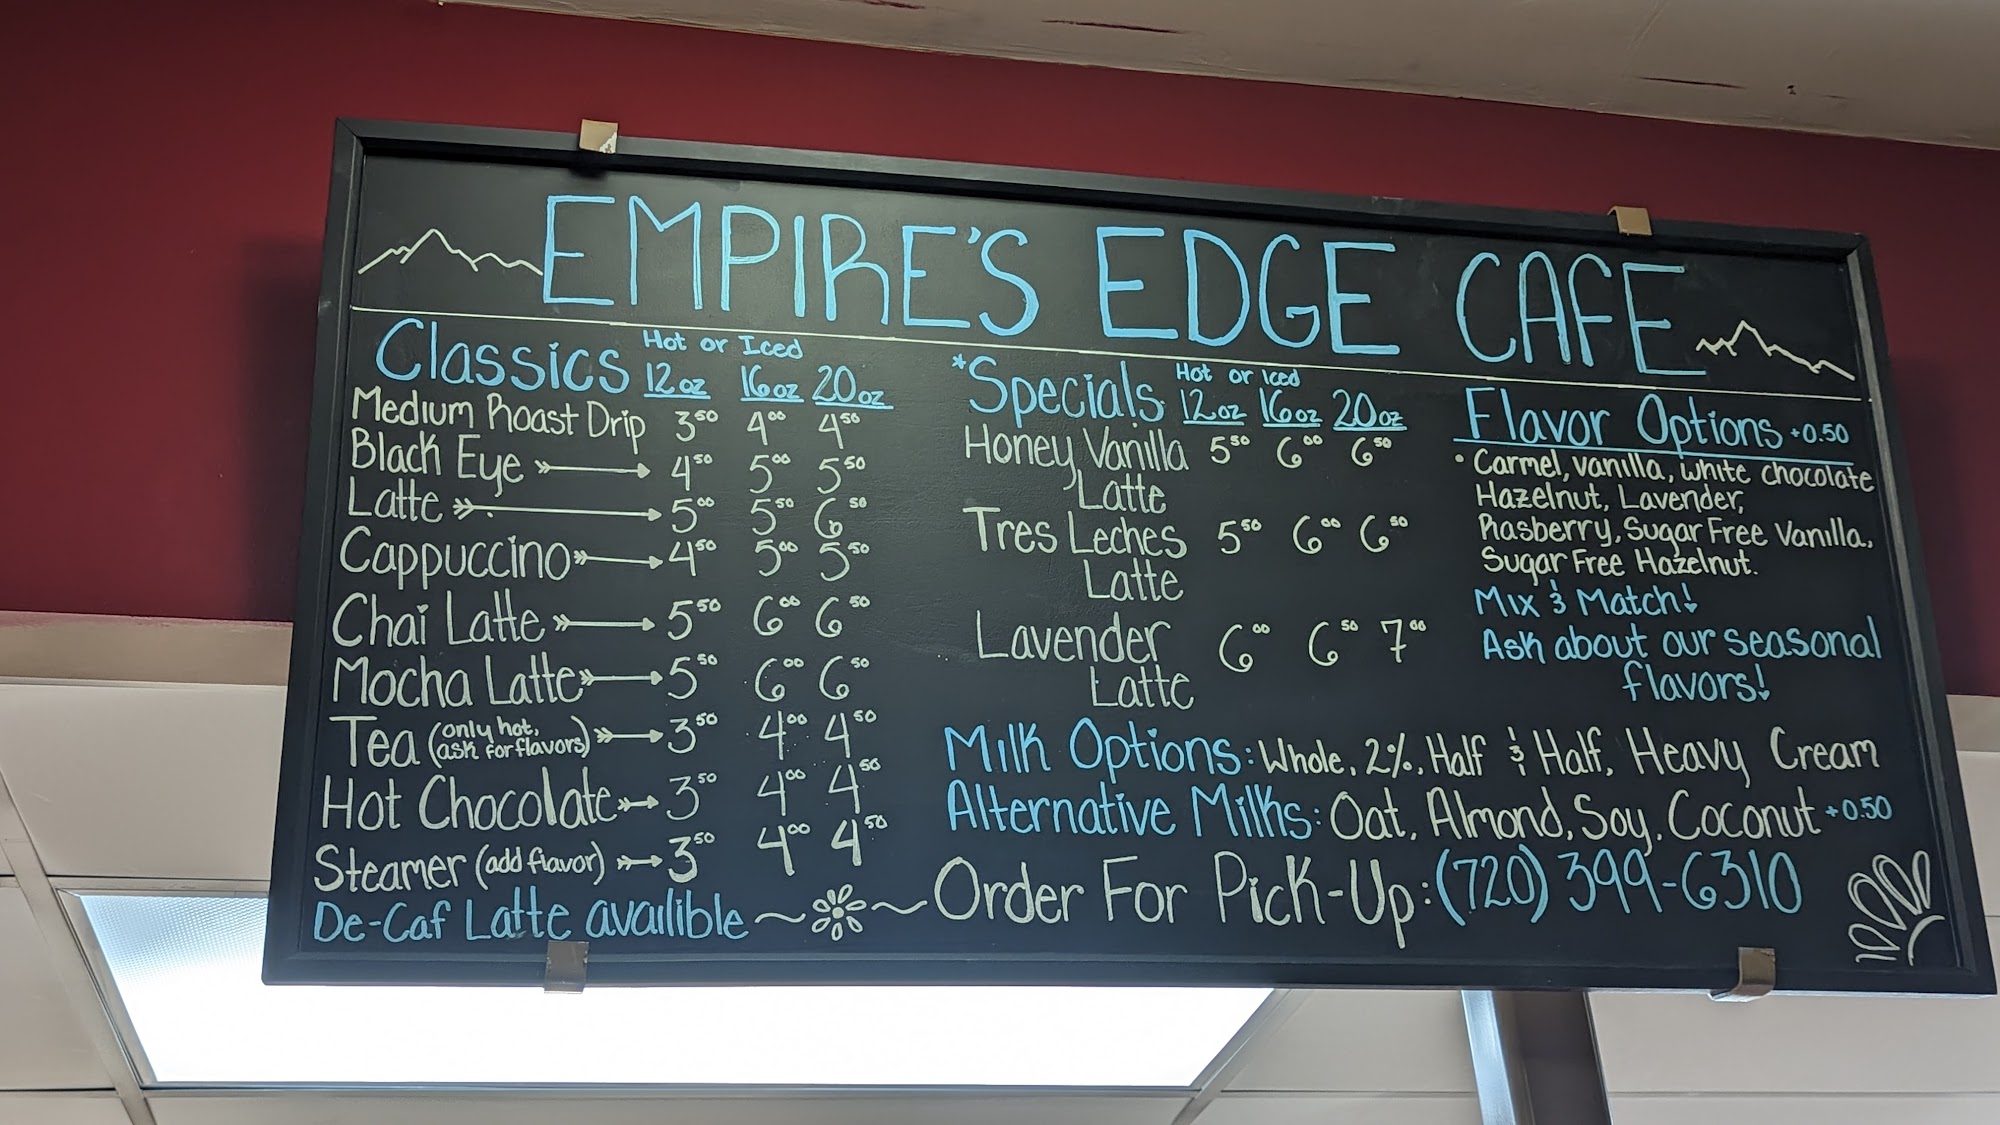 EMPIRE'S EDGE CAFE
Classics Hot or Iced
12oz 16oz 20oz
Medium Roast Drip 3.50 4.00 4.50
Black Eye 4.50 5.00 5.50
Latte 5.00 5.50 6.50
Cappuccino 4.50 5.00 5.50
Chai Latte 5.50 6.00 6.50
Mocha Latte 5.50 6.00 6.50
Tea (only hot, ask for flavors) 3.50 4.00 4.50
Hot Chocolate 3.50 4.00 4.50
Steamer (add flavor) 3.50 4.00 4.50
De-Caf Latte availible
*Specials Hot or Iced
12oz 16oz 20oz
Honey Vanilla 5.50 6.00 6.50
Latte
Tres Leches 5.50 6.00 6.50
Latte
Lavender 6.00 6.50 7.00
Latte
Flavor Options +0.50
• Carmel, vanilla, white chocolate
Hazelnut, Lavender,
Rasberry, Sugar Free Vanilla,
Sugar Free Hazelnut.
Mix & Match!
Ask about our seasonal
flavors!
Milk Options: Whole, 2%, Half & Half, Heavy Cream
Alternative Milks: Oat, Almond, Soy, Coconut +0.50
Order For Pick-Up: (720) 399-6310